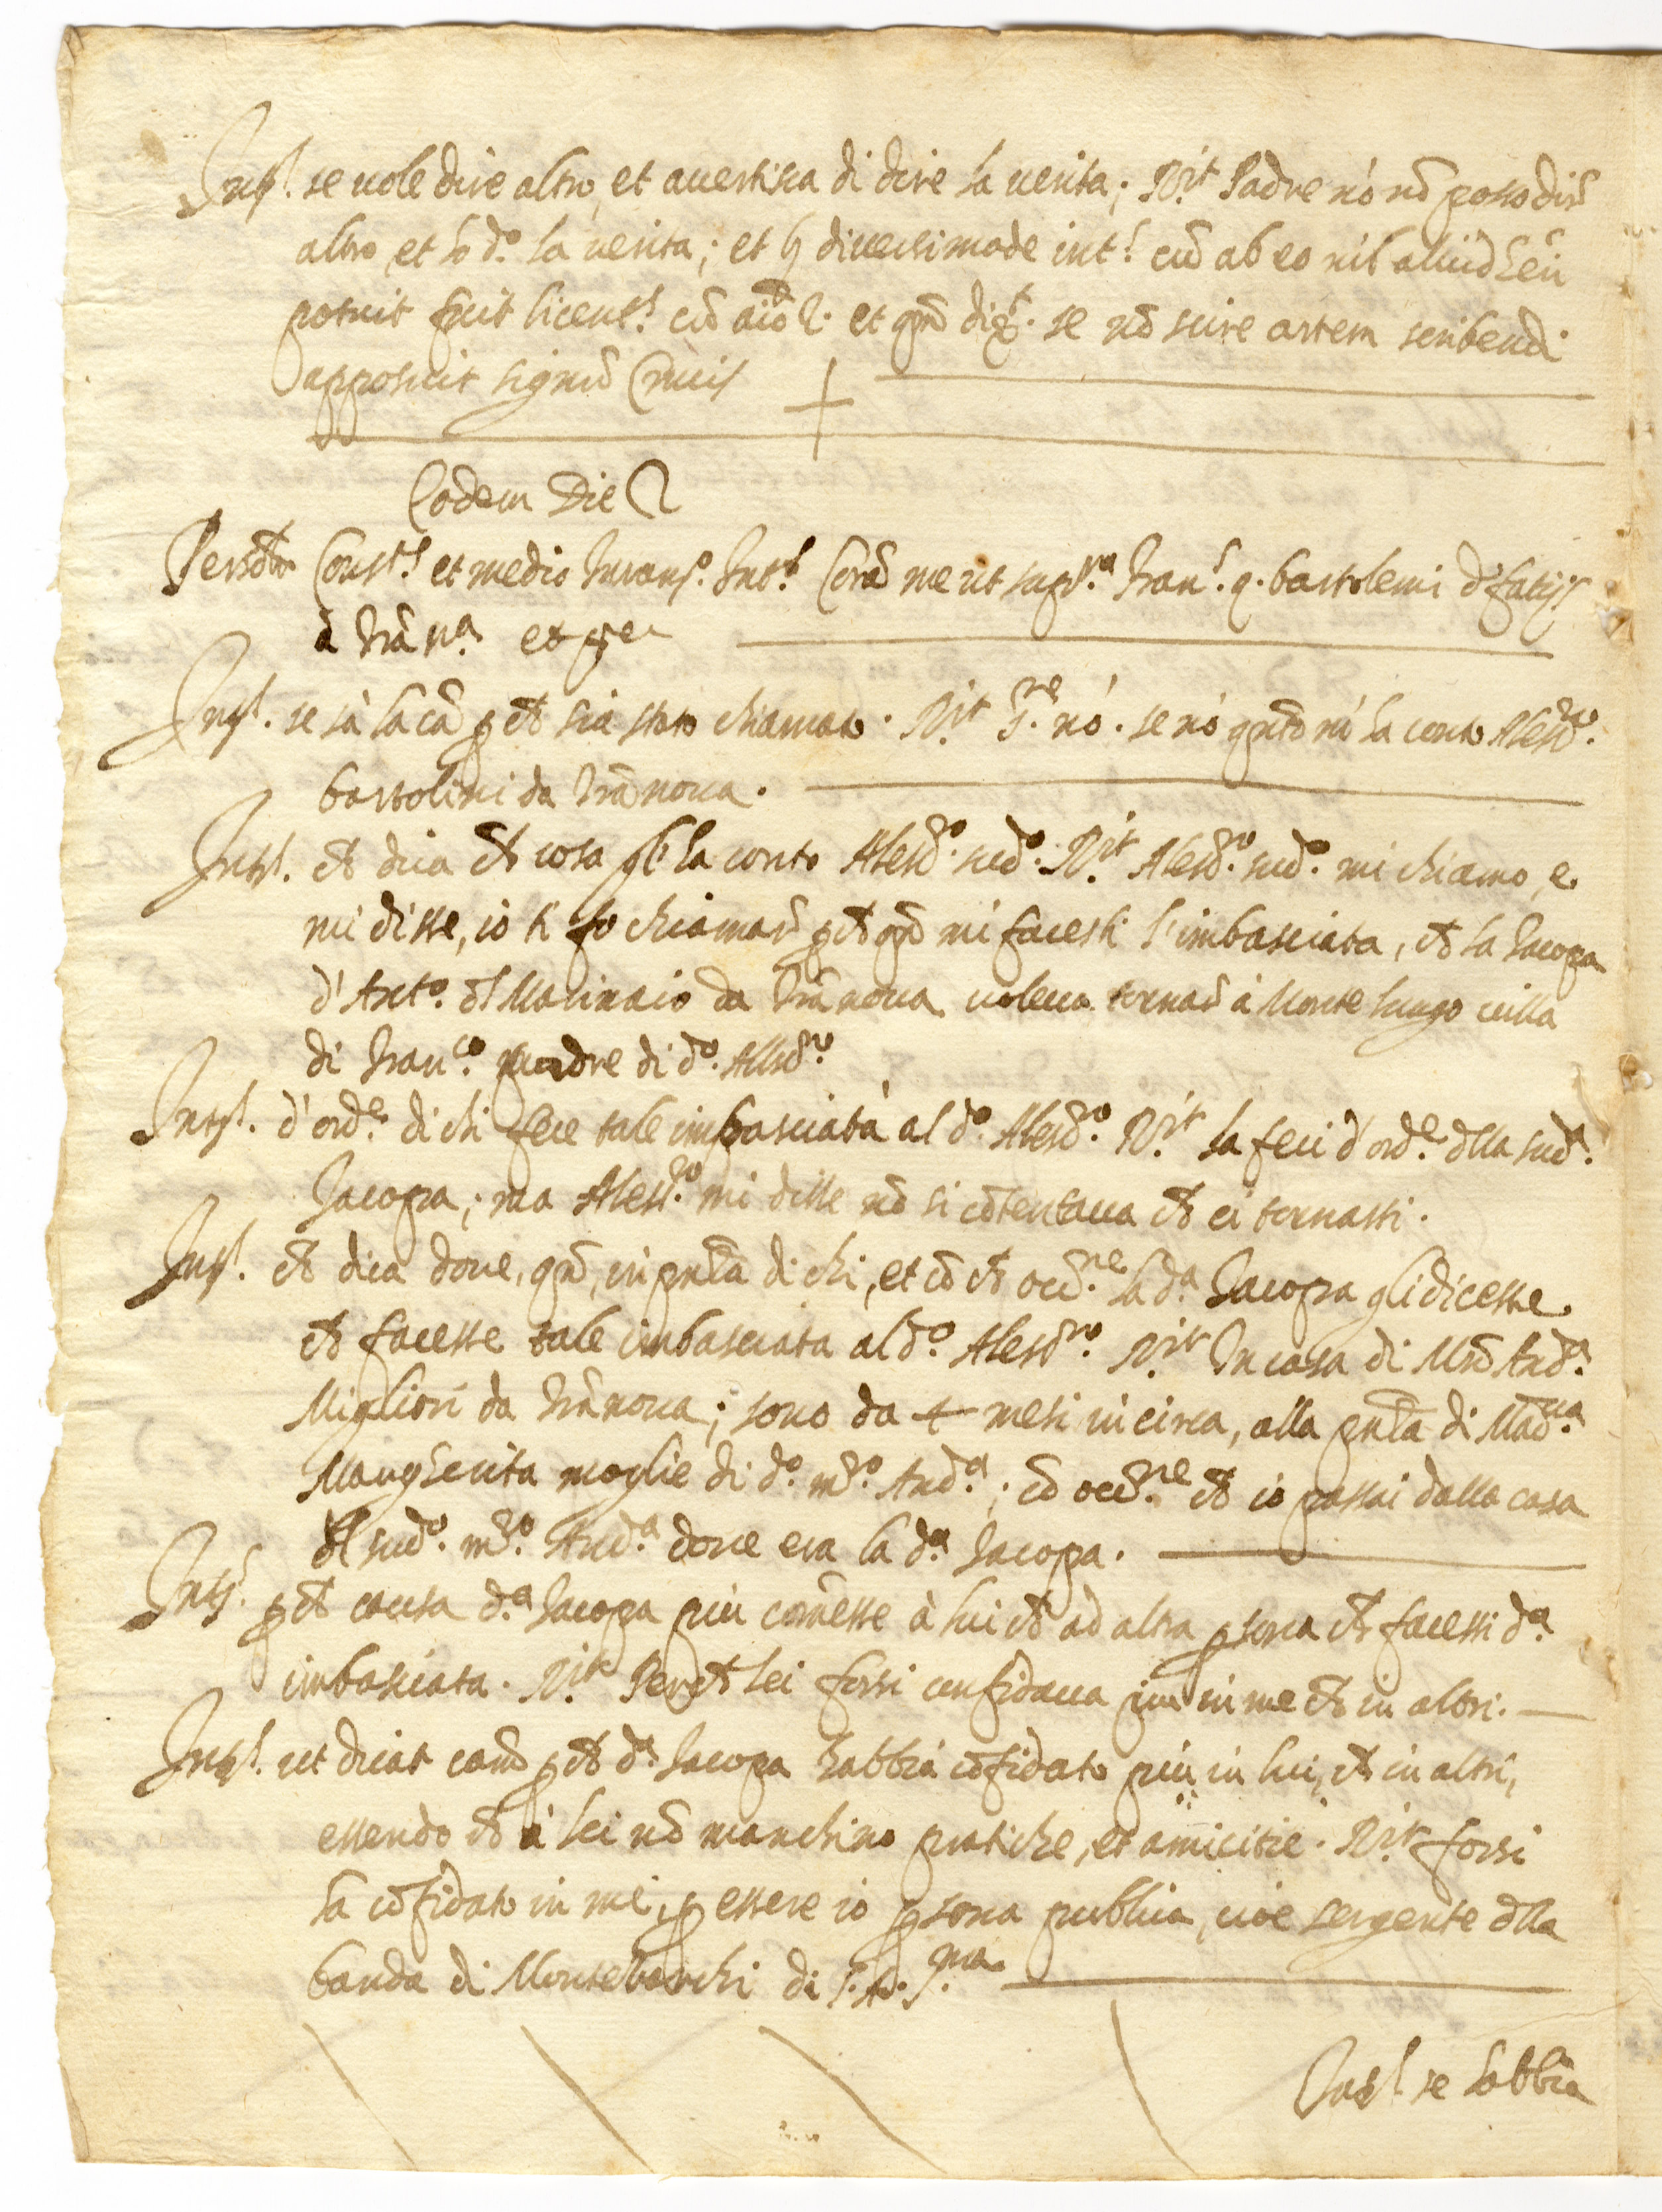 Int.s se uole dire altro, et auertisca di dire la uerita; R.it Padre nò nō posso dirē
altro et hò d.o la uerita; et ꝑ diuersimode int.s cū ab eo nil aliud
potuit fuit licent.s cū aīo et qn̄ dix.t se nō scire artem scribendi
apposuit signū Crucis +
Eodem Die
Person̄ Const.s et medio Iuram.o Int.s Corā me ut sup.ra Fran.s q. bartolemi d
à Trā n.a et
Int.s se sà la cā ꝑ che sia stato chiamato. R.it S.re nò. se nò qnto mi ha conto Alesd.ro
bartolini da Trānoua.
Int.s che dica che cosa gl'ha conto Alesd.ro sud.o R.it Alesd.ro sud.o mi chiamo, e
mi disse, io ti fo chiamarē ꝑche qn̄ mi facesti l'imbasciata, che la Iacopa
d'Ant.o del Marinaio da Trānoua uoleua tornarē à Monte lungo uilla
di Fran.co padre di d.o Alesd.ro
Int.s d'ord.e di chi fece tale imbasciata al d.o Alesd.ro R.it la feci d'ord.e della sud.a
Iacopa; ma Aless.ro mi disse nō si cōtentaua che ci tornassi.
Int.s che dica doue, qn̄, in pn̄tia di chi, et cō che occ.ne la d.a Iacopa gli dicesse
che facesse tale imbasciata al d.o Alesd.ro R.it In casa di Mrō And.a
Migliori da Trānoua; sono da 4 mesi in circa, alla pn̄tia di Mad.na
Margherita moglie di d.o m.ro And.a; cō occ.ne che io passai dalla casa
del sud.o m.ro And.a doue era la d.a Iacopa.
Int.s ꝑche causa d.a Iacopa più com̄esse à lui che ad altra ꝑsona che facessi d.a
imbasciata. R.it Perche lei forsi confidaua piu in me che in altri.
Int.s ut dicat cam̄ ꝑche d.a Iacopa habbia cōfidato più in lui, che in altri,
essendo che à lei nō manchino pratiche, et amicitie. R.it forsi
ha cōfidato in me, ꝑ essere io ꝑsona publica, cioè sergente della
banda di Monteuarchi di S. A. S.ma
Int.s se habbia